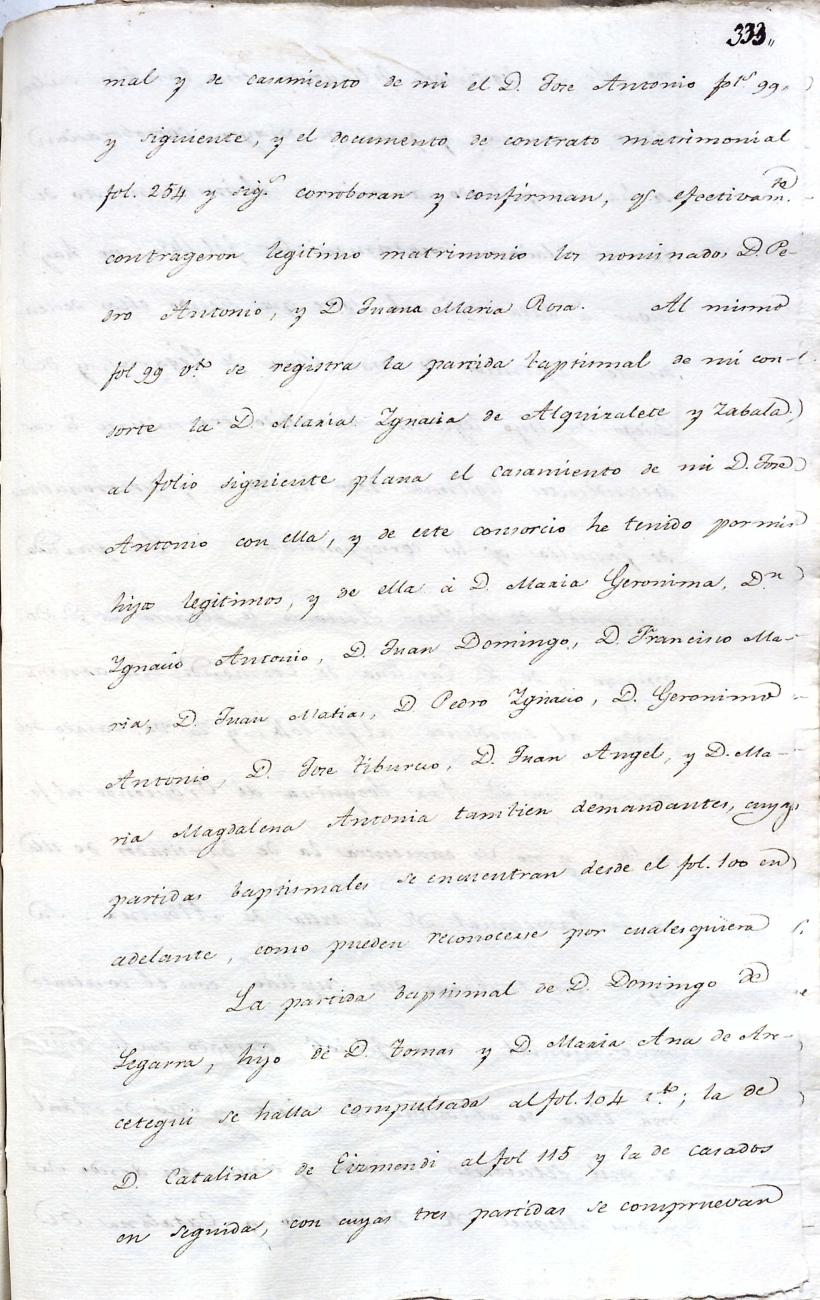 333,,
mal y de casamiento de mi el D. Jose Antonio fol.s 99,
y siguiente, y el documento de contrato matrimonial
fol. 254 y sig.e corroboran y confirman, q.e efectivam.te
contrageron legitimo matrimonio los nominados D. Pe-
dro Antonio, y D. Juana Maria Rosa. Al mismo
fol 99 v.to se registra la partida baptismal de mi con-
sorte la D. Maria Ygnacia de Alquizalete y Zabala,
al folio siguiente plana el casamiento de mi D. Jose
Antonio con ella, y de este consorcio he tenido por mis
hijos legitimos, y de ella á D. Maria Geronima, D.n
Ygnacio Antonio, D. Juan Domingo, D. Francisco Ma-
ria, D. Juan Matias, D Pedro Ygnacio, D. Geronimo
Antonio, D. Jose Tiburcio, D. Juan Angel, y D. Ma-
ria Magdalena Antonia tambien demandantes, cuyas
partidas baptismales se encuentran desde el fol. 100 en
adelante, como pueden reconocerse por cualesquiera
La partida baptismal de D. Domingo de
Legarra, hijo de D. Tomas y D. Maria Ana de Are-
cetegui se halla compulsada al fol. 104 v.to; la de
D. Catalina de Eizmendi al fol 115 y la de casados
en seguida, con cuyas tres partidas se compruevan